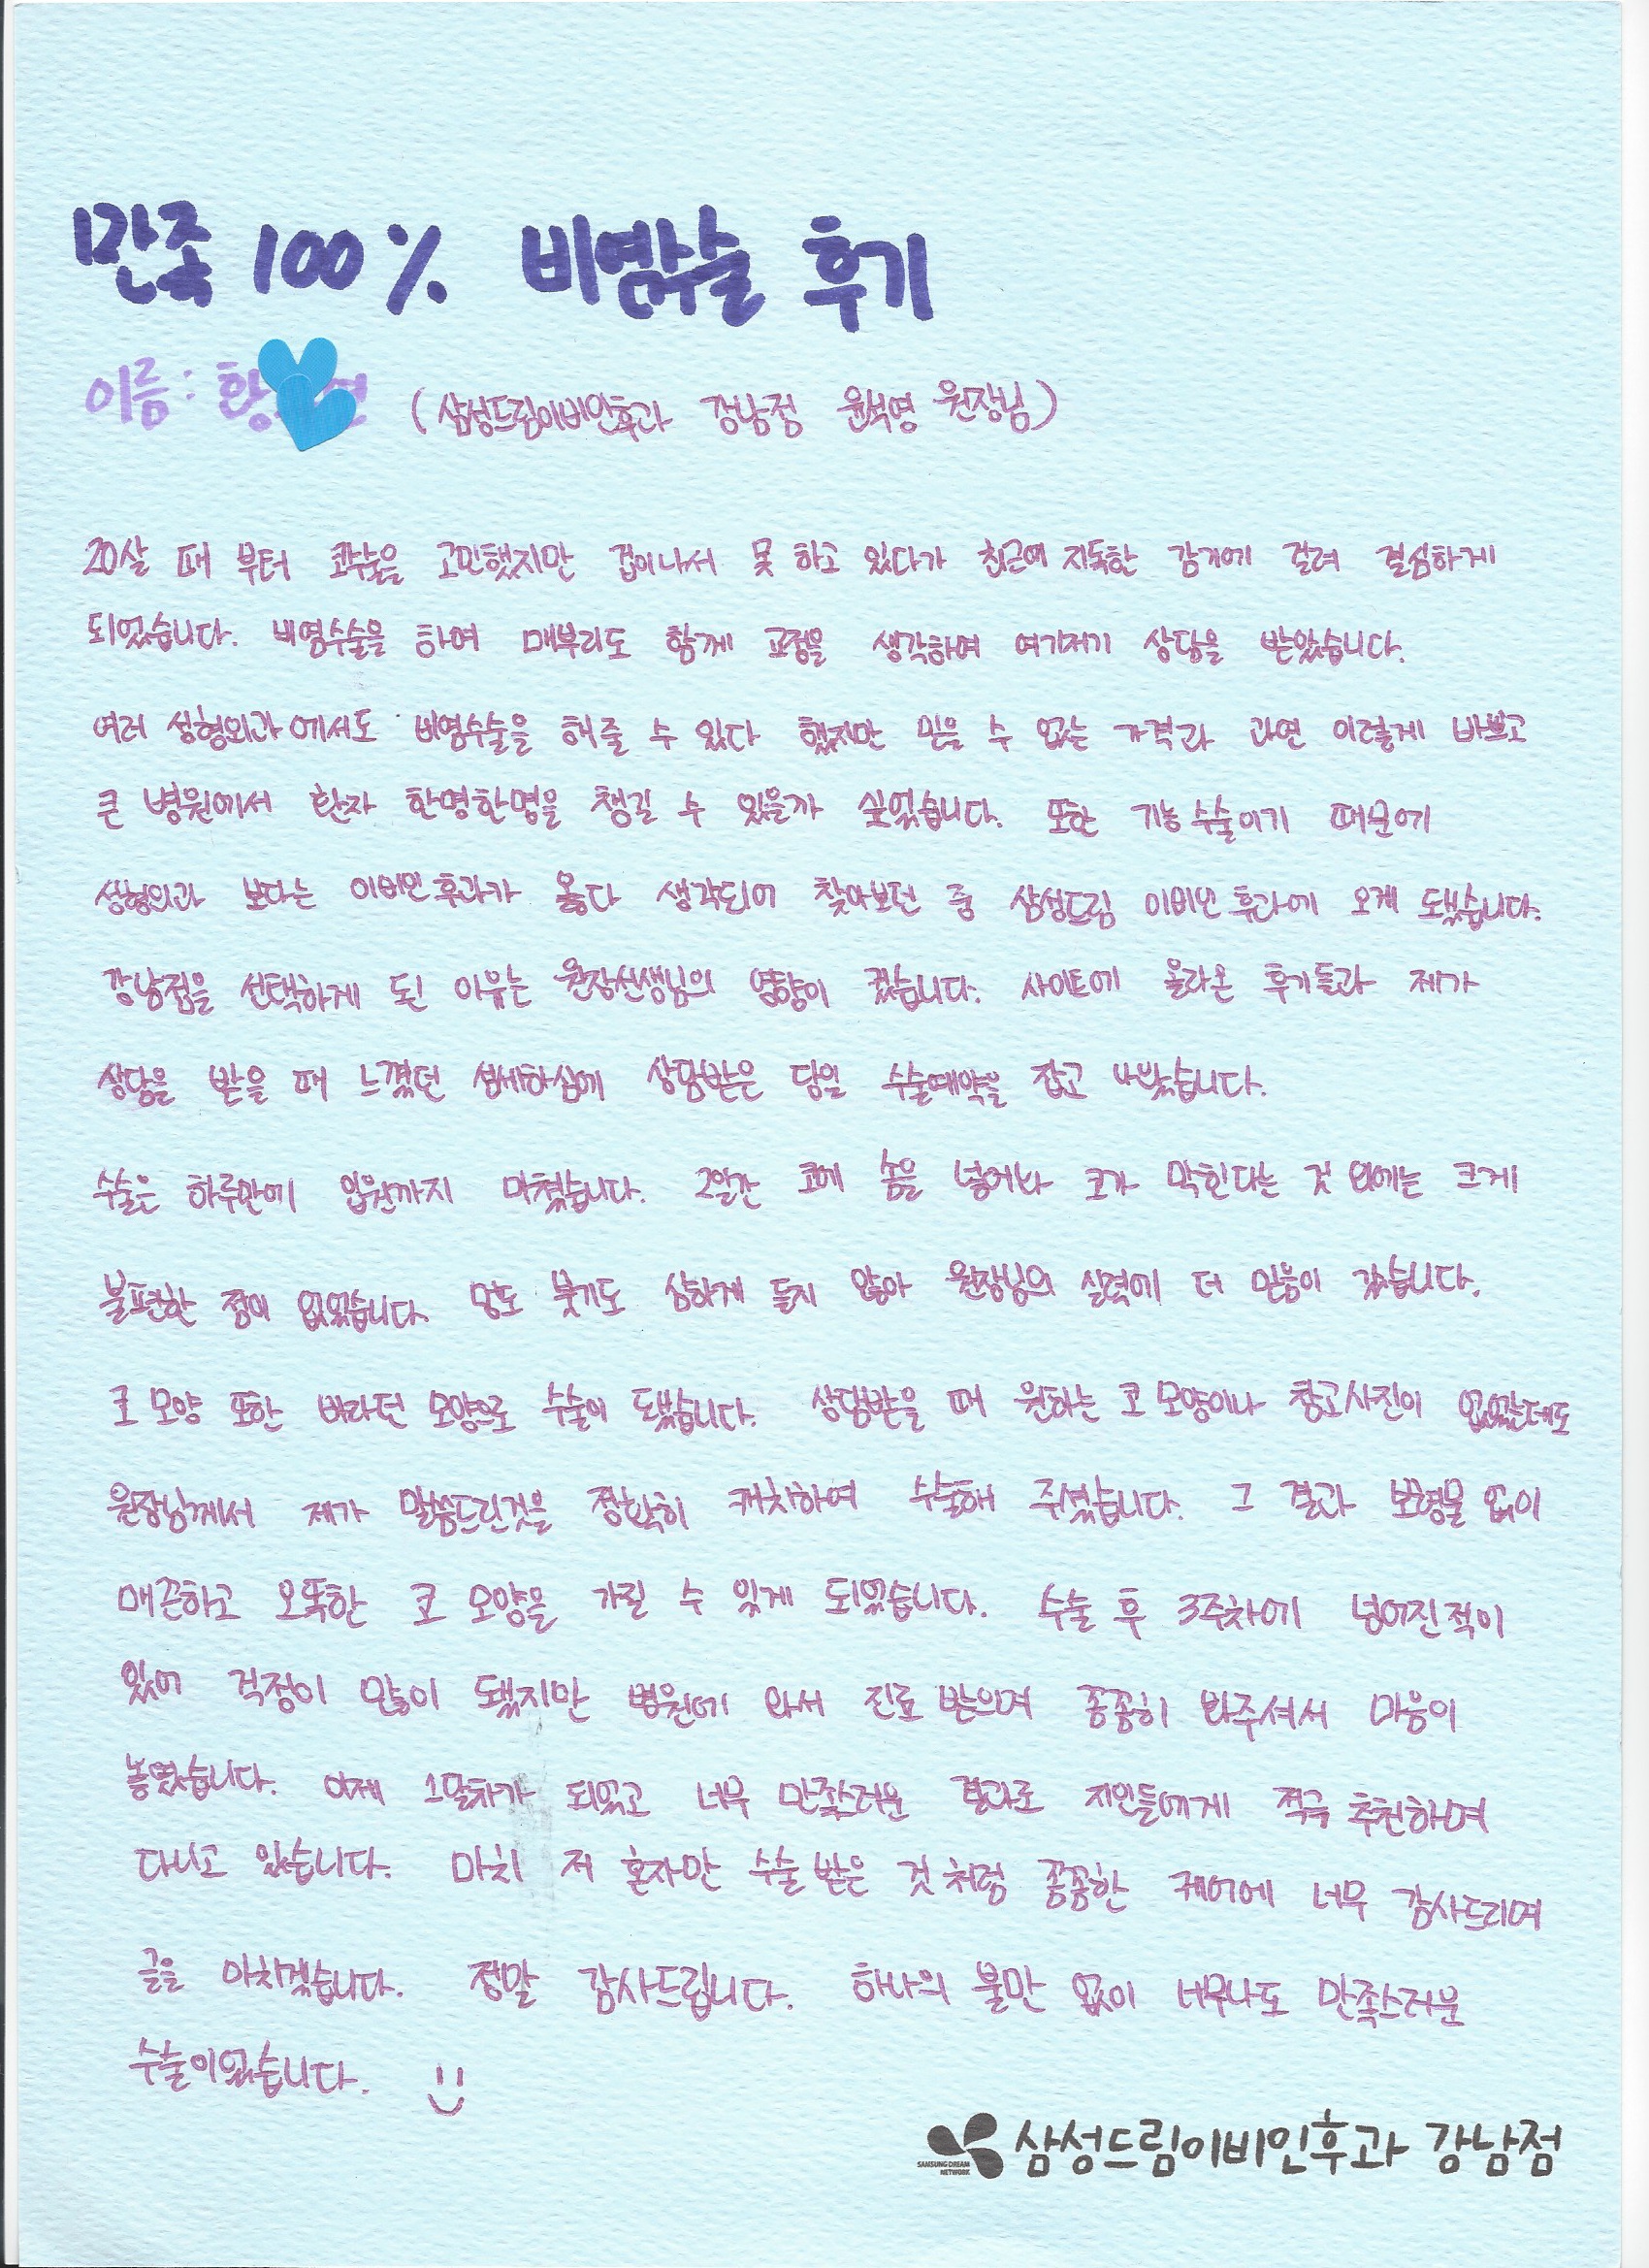 만족 100% 비염수술 후기
이름: 황 연 (삼성드림이비인후과 강남점 윤석영 원장님)
20살 때 부터 코수술을 고민했지만 겁이나서 못 하고 있다가 최근에 지독한 감기에 걸려 결심하게
되었습니다. 비염수술을 하며 매부리도 함께 교정을 생각하여 여기저기 상담을 받았습니다.
여러 성형외과에서도 비염수술을 해줄 수 있다 했지만 믿을 수 없는 가격과 과연 이렇게 바쁘고
큰 병원에서 환자 한명한명을 챙길 수 있을까 싶었습니다. 또한 기능수술이기 때문에
성형외과 보다는 이비인후과가 옳다 생각되어 찾아보던 중 삼성드림 이비인후과에 오게 됐습니다.
강남점을 선택하게 된 이유는 원장선생님의 영향이 컸습니다. 사이트에 올라온 후기들과 제가
상담을 받을 때 느꼈던 섬세하심에 상담받은 당일 수술예약을 잡고 나왔습니다.
수술은 하루만에 입원까지 마쳤습니다. 2일간 코에 솜을 넣어놔 코가 막힌다는 것 외에는 크게
불편한 점이 없었습니다. 멍도 붓기도 심하게 들지 않아 원장님의 실력에 더 믿음이 갔습니다.
코 모양 또한 바라던 모양으로 수술이 됐습니다. 상담받을 때 원하는 코 모양이나 참고사진이 없었는데도
원장님께서 제가 말씀드린것을 정확히 캐치하여 수술해 주셨습니다. 그 결과 보형물 없이
매끈하고 오똑한 코 모양을 가질 수 있게 되었습니다. 수술 후 3주차에 넘어진적이
있어 걱정이 많이 됐지만 병원에 와서 진료 받으며 꼼꼼히 봐주셔서 마음이
놓였습니다. 이제 1달차가 되었고 너무 만족스러운 결과로 지인들에게 적극 추천하며
다니고 있습니다. 마치 저 혼자만 수술 받은 것 처럼 꼼꼼한 케어에 너무 감사드리며
글을 마치겠습니다. 정말 감사드립니다. 하나의 불만 없이 너무나도 만족스러운
수술이었습니다.
SAMSUNG DREAM NETWORK 삼성드림이비인후과 강남점